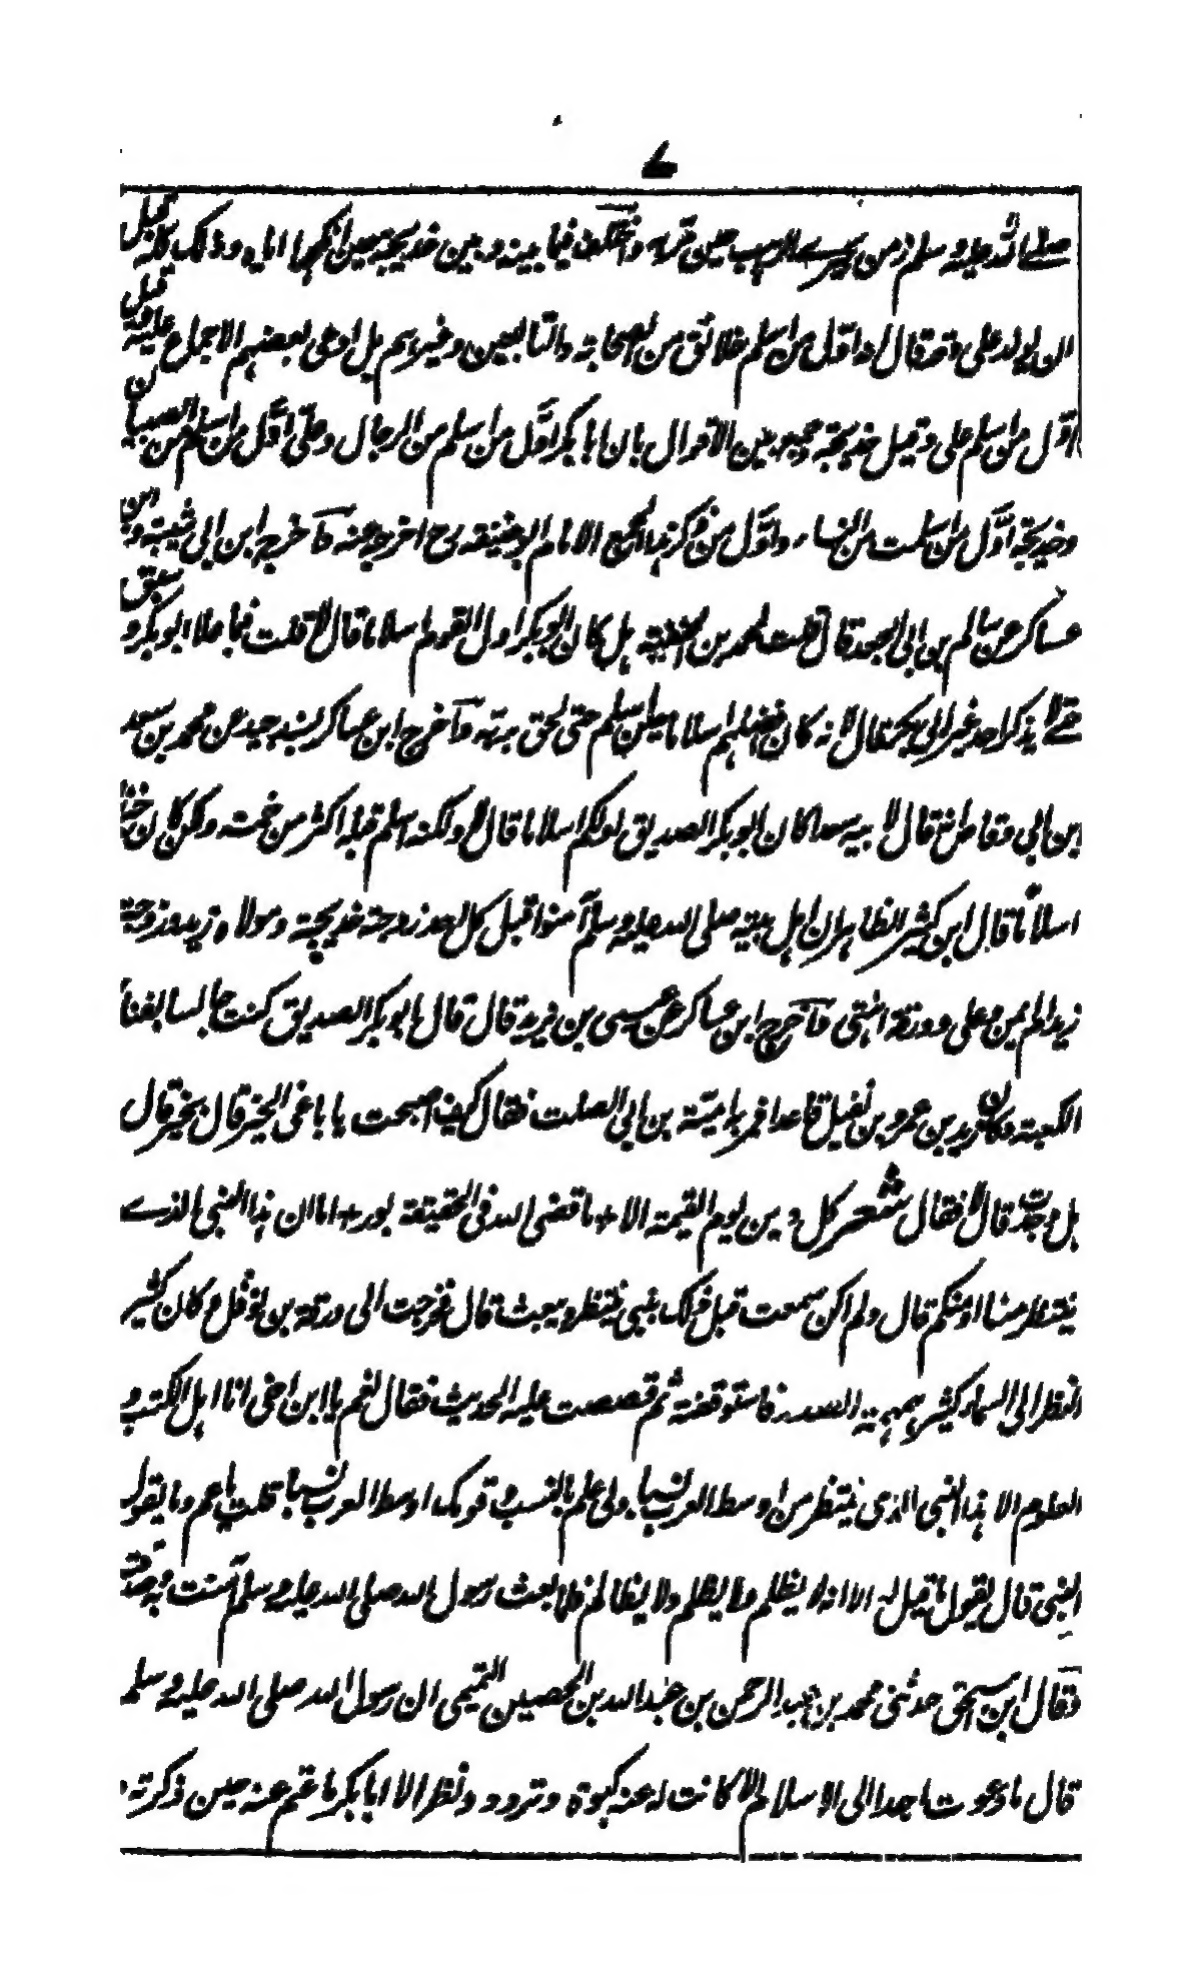 ٧
صلى الله عليه وسلم زمن بحيرى الراهب حين مر به واختلف فيما بينه وبين خديجة حين انكحها اياه وذلك كله قبل
ان يولد على وقد قال انه اول من اسلم خلائق من الصحابة والتابعين وغيرهم بل ادعى بعضهم الاجماع عليه وقيل
اول من اسلم على وقيل خديجة وجمع بين الاقوال بان ابا بكر اول من اسلم من الرجال وعلى اول من اسلم من الصبيان
وخديجة اول من اسلمت من النساء واول من ذكر هذا الجمع الامام ابو حنيفة رح اخرجه عنه واخرج ابن ابى شيبة وابن
عساكر عن سالم بن ابى الجعد قال قلت لمحمد بن الحنفية هل كان ابو بكر اول القوم اسلاما قال لا قلت فبما علا ابو بكر وسبق
حتى لا يذكر احد غير ابى بكر قال لانه كان افضلهم اسلاما حين اسلم حتى لحق بربه واخرج ابن عساكر بسند جيد عن محمد بن سعد
ابن ابى وقاص انه قال لابيه سعد اكان ابو بكر الصديق اولكم اسلاما قال لا ولكنه اسلم قبله اكثر من خمسة ولكن كان خيرنا
اسلامًا قال ابن كثير الظاهر ان اهل بيته صلى الله عليه وسلم آمنوا قبل كل احد زوجته خديجة ومولاه زيد وزوجة
زيد ام ايمن وعلى وورقة انتهى واخرج ابن عساكر عن عيسى بن يزيد قال قال ابو بكر الصديق كنت جالسا بفناء
الكعبة وكان زيد بن عمرو بن نفيل قاعدا فمر به امية بن ابى الصلت فقال كيف اصبحت يا باغى الخير قال بخير قال
هل وجدت قال لا فقال شعر كل دين يوم القيمة الا + ما قضى الله فى الحقيقة بور + اما ان هذا النبى الذے
ينتظر منا او منكم قال ولم اكن سمعت قبل ذلك بنبى ينتظر ويبعث قال فخرجت الى ورقة بن نوفل وكان كثير
النظر الى السماء كثير همهمة الصدر فاستوقفته ثم قصصت عليه الحديث فقال نعم يا ابن اخى انا اهل الكتب و
العلوم الا ان هذا النبى الذى ينتظر من اوسط العرب نسبا ولى علم بالنسب وقومك اوسط العرب نسبا قلت يا عم وما يقول
النبى قال يقول ما قيل له الا انه لا يظلم ولا يظلم ولا يظالم فلما بعث رسول الله صلى الله عليه وسلم آمنت به وصدقته
وقال ابن اسحق حدثنى محمد بن عبد الرحمن بن عبد الله بن الحصين التميمى ان رسول الله صلى الله عليه وسلم
قال ما دعوت احدا الى الاسلام الا كانت له عنه كبوة وتردد ونظر الا ابا بكر ما عتم عنه حين ذكرته